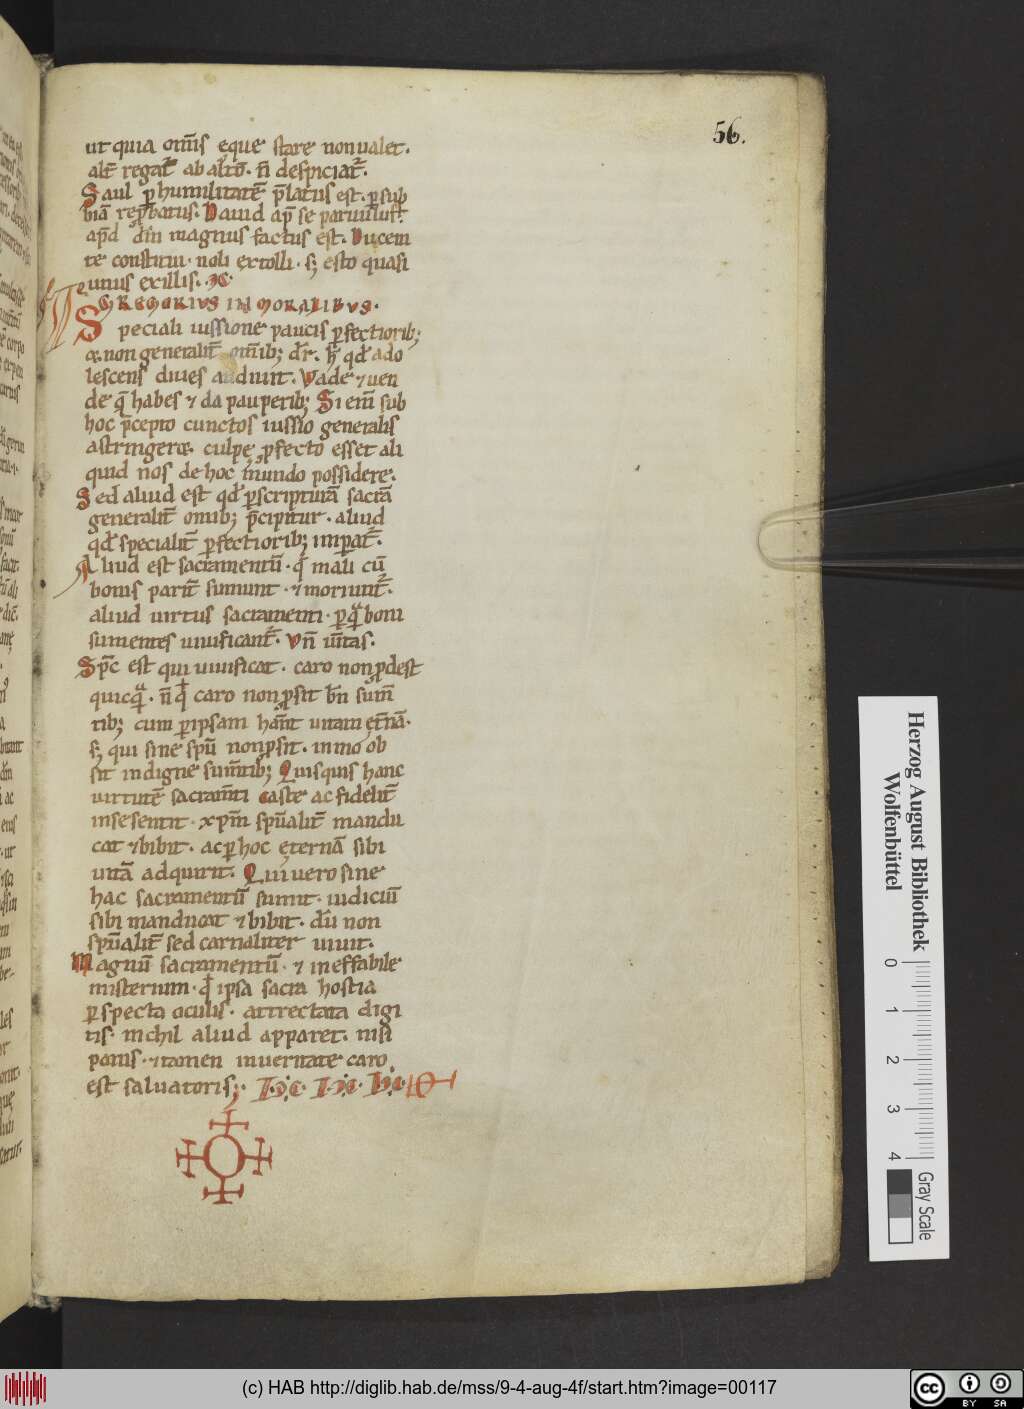 56.
ut quia om̅is ęque stare non ualet.
alt̅ regat᷑ ab alt̅o. n̅ despiciat᷑.
Saul ꝑ humilitate̅ p̅latus est. ꝑ sub
bia̅ rep̅batus. Dauid ap̅ se paruulus
ap̅d dn̅m magnus factus est. Ducem
te constitui. noli extolli. s; esto quasi
unus ex illis.
GREGORIUS IN MORALIBVS.
Speciali iussione paucis ꝑfectiorib;
& non generalit̅ om̅ib; dr̅. h̅ qd̅ ado
lescens diues audiuit. Vade & uen
de q̅ habes & da pauperib; Si eni̅ sub
hoc p̅cepto cunctos iussio generalis
astringeret. culpę ꝓfecto esset ali
quid nos de hoc mundo possidere.
Sed aliud est qd̅ ꝑ scriptura̅ sacra̅
generalit̅ omib; p̅cipitur. aliud
qd̅ specialit̅ ꝑfectiorib; imꝑat᷑.
Aliud est sacramentu̅. qd̅ mali cu̅
bonis parit̅ sumunt. & moriunt᷑.
aliud uirtus sacramenti. ꝑ qua̅ boni
sumentes uiuificant᷑. Vn̅ u̅itas.
Sp̅c est qui uiuificat. caro non ꝓdest
quicqua̅. n̅ qd̅ caro non ꝓsit bn̅ sum̅
tib; cum ꝑ ipsam han̅t uitam et̅na̅.
s; qui sine sp̅u non ꝓsit. inmo ob
sit indigne sum̅tib; Quisquis hanc
uirtute̅ sacram̅ti caste ac fidelit̅
in se sentit. xp̅m sp̅ualit̅ mandu
cat & bibit. ac ꝑ hoc ęterna̅ sibi
uita̅ adquirit. Qui uero sine
hac sacramentu̅ sumit. iudiciu̅
sibi manducat & bibit. du̅ non
sp̅ualit̅ sed carnaliter uiuit.
Magnu̅ sacramentu̅. & ineffabile
misterium. qd̅ ipsa sacra hostia
ꝑspecta oculis. attrectata digi
tis. nichil aliud apparet. nisi
panis. & tamen in ueritate caro
est saluatoris;
Herzog August Bibliothek
Wolfenbüttel
0 1 2 3 4
Gray Scale
(c) HAB http://diglib.hab.de/mss/9-4-aug-4f/start.htm?image=00117
cc BY SA